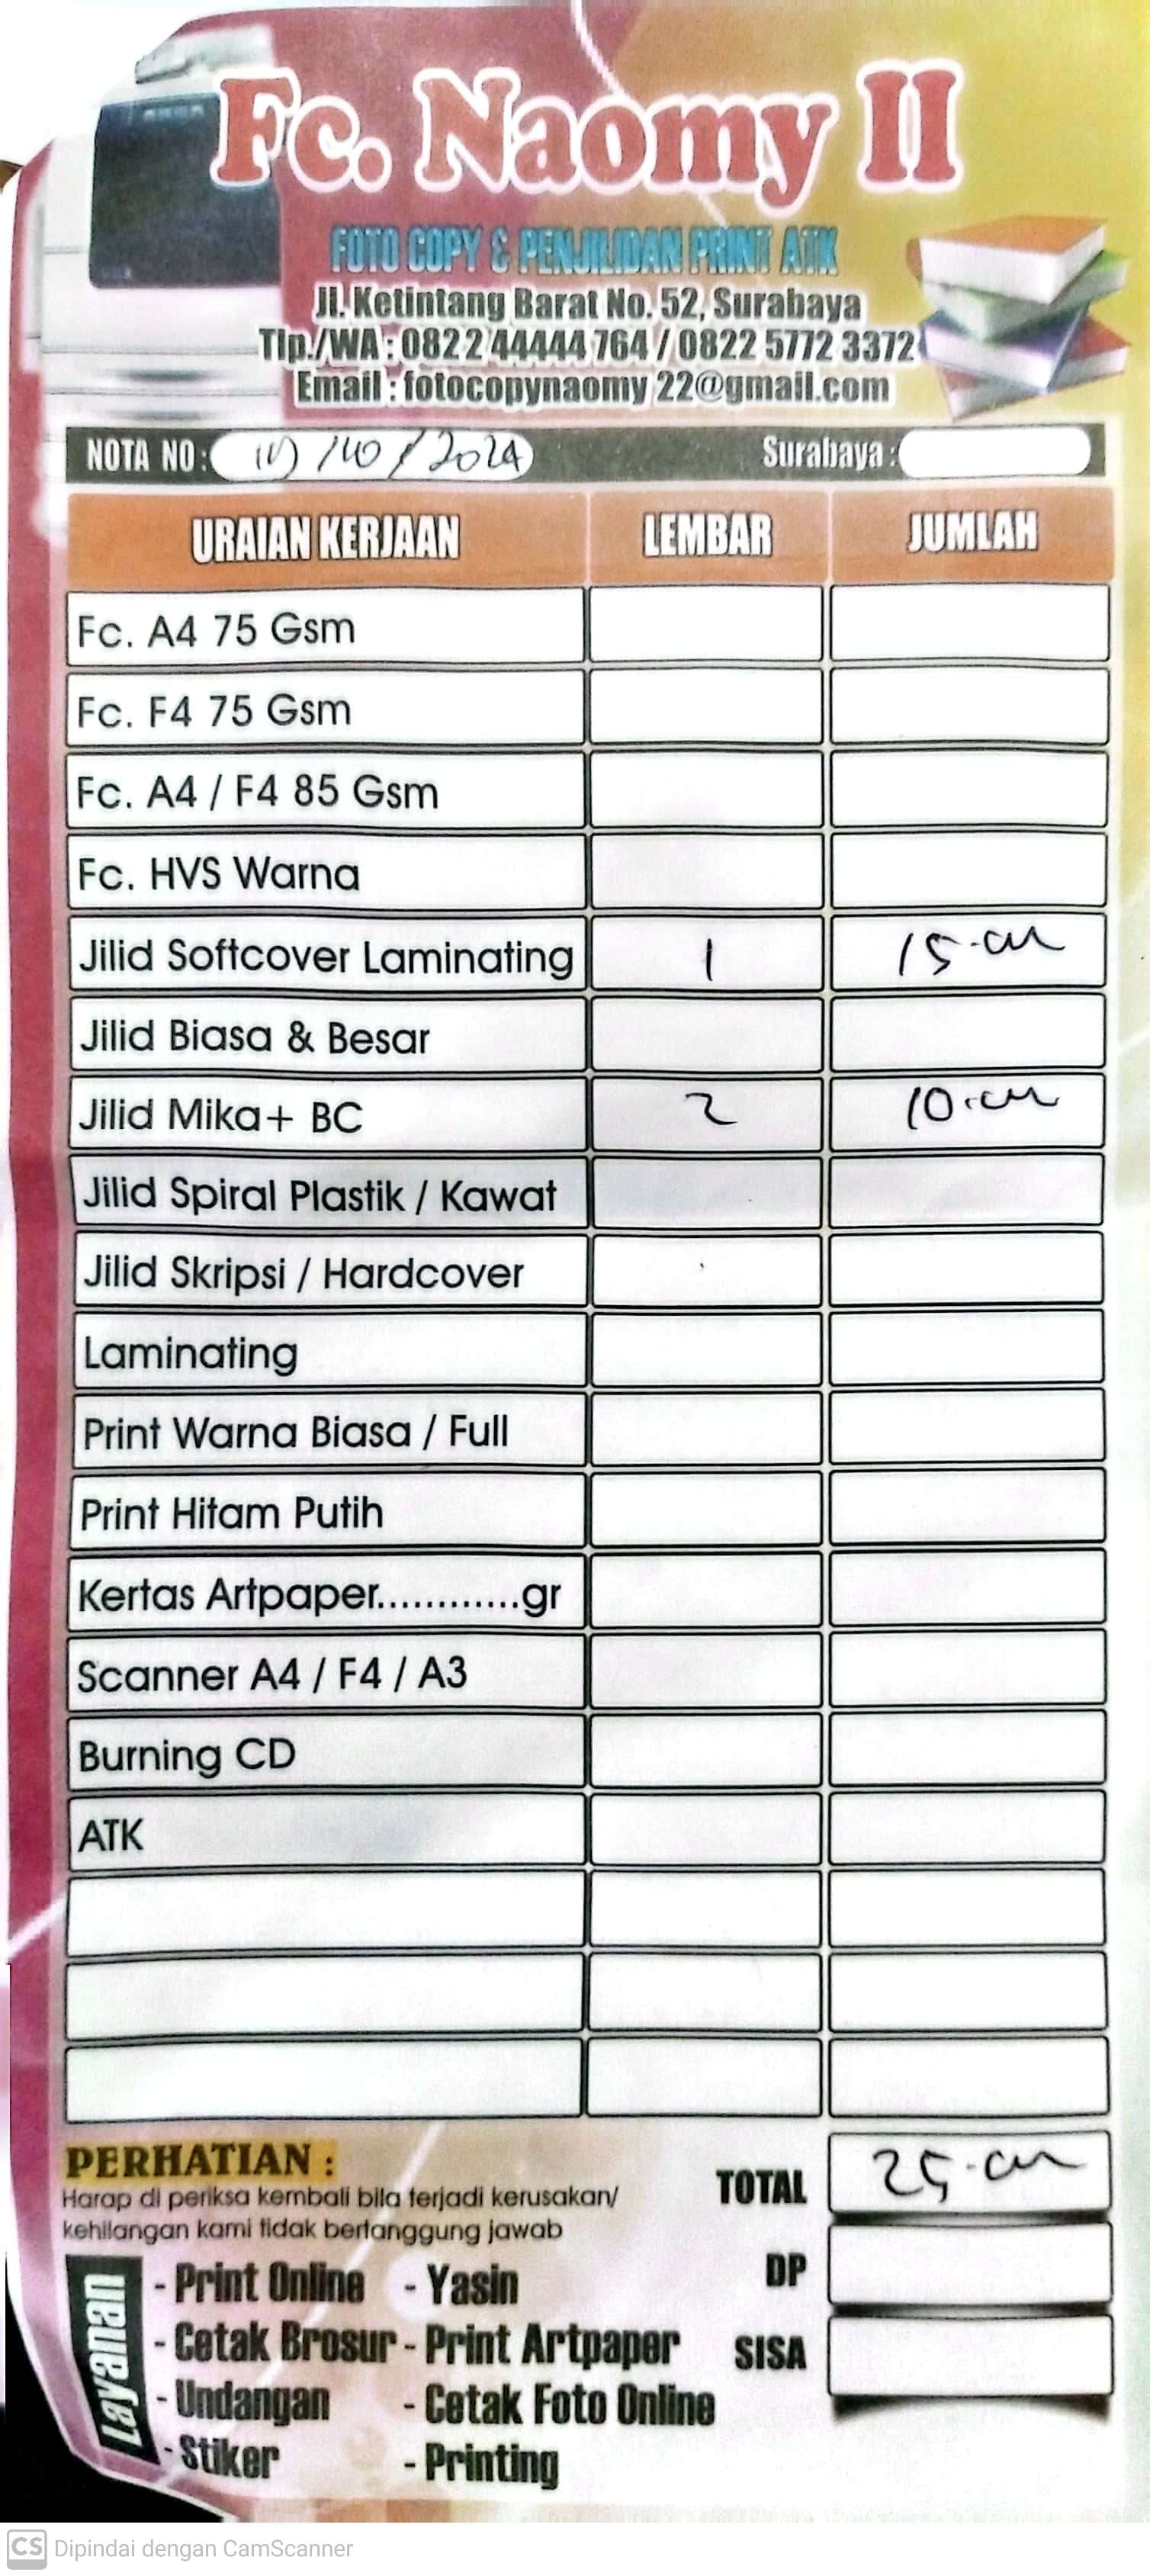 Fc. Naomy II
FOTO COPY & PENJILIDAN PRINT ATK
Jl. Ketintang Barat No. 52, Surabaya
Tlp./WA : 0822 44444 764 / 0822 5772 3372
Email : fotocopynaomy 22@gmail.com
NOTA NO : /2024 Surabaya :
URAIAN KERJAAN LEMBAR JUMLAH
Fc. A4 75 Gsm
Fc. F4 75 Gsm
Fc. A4 / F4 85 Gsm
Fc. HVS Warna
Jilid Softcover Laminating 1 15.
Jilid Biasa & Besar
Jilid Mika+ BC 2 10.
Jilid Spiral Plastik / Kawat
Jilid Skripsi / Hardcover
Laminating
Print Warna Biasa / Full
Print Hitam Putih
Kertas Artpaper............gr
Scanner A4 / F4 / A3
Burning CD
ATK
PERHATIAN :
Harap di periksa kembali bila terjadi kerusakan/
kehilangan kami tidak bertanggung jawab
TOTAL 25.
DP
SISA
Layanan
- Print Online - Yasin
- Cetak Brosur - Print Artpaper
- Undangan - Cetak Foto Online
- Stiker - Printing
CS Dipindai dengan CamScanner